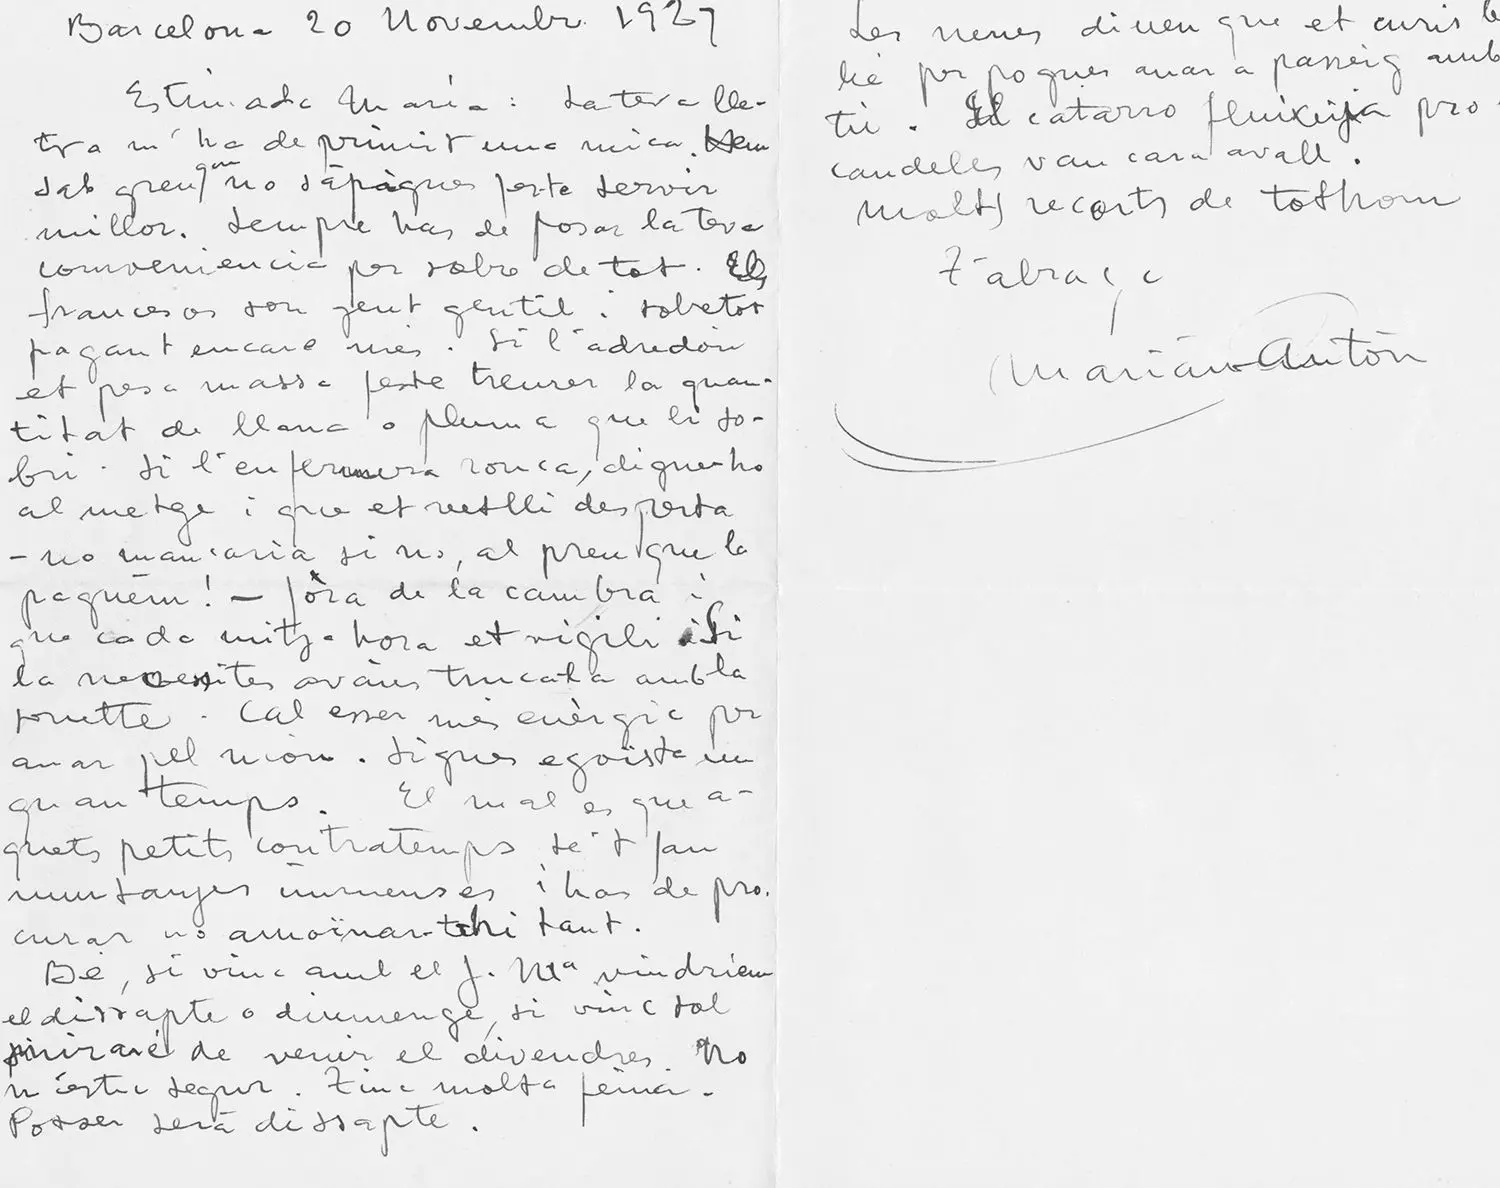 Barcelona 20 Novembre 1927
Estimada Maria: La teva lle-
tra m'ha deprimit una mica. Hem
sab greu que no sàpigues ferte servir
millor. Sempre has de posar la teva
conveniencia per sobre de tot. Els
francesos son gent gentil i sobretot
pagant encare més. Si l'adredón
et pesa massa feste treurer la quan-
titat de llana o pluma que li so-
bri. Si l'enfermera ronca, digues-ho
al metge i que et vetlli desperta
- no mancaria si no, al preu que la
paguem! - fòra de la cambra i
que cada mitja hora et vigili i si
la necessites avans trucala amb la
sonette. Cal esser més enèrgic per
anar pel món. Sigues egoista un
quan temps. El mal es que a-
quets petits contratemps se't fan
muntanyes immenses i has de pro-
curar no amoïnar-tehi tant.
Bé, si vinc amb el J. Mª vindriem
el dissapte o diumenge, si vinc sol
miraré de venir el divendres. No
n'estic segur. Tinc molta feina.
Potser serà dissapte.
Les nenes diuen que et curis
bé per pogues anar a passeig amb
tú. El catarro fluixeija pro
candeles van cara avall.
Molts recorts de tothom
T'abraça
Marian Anton